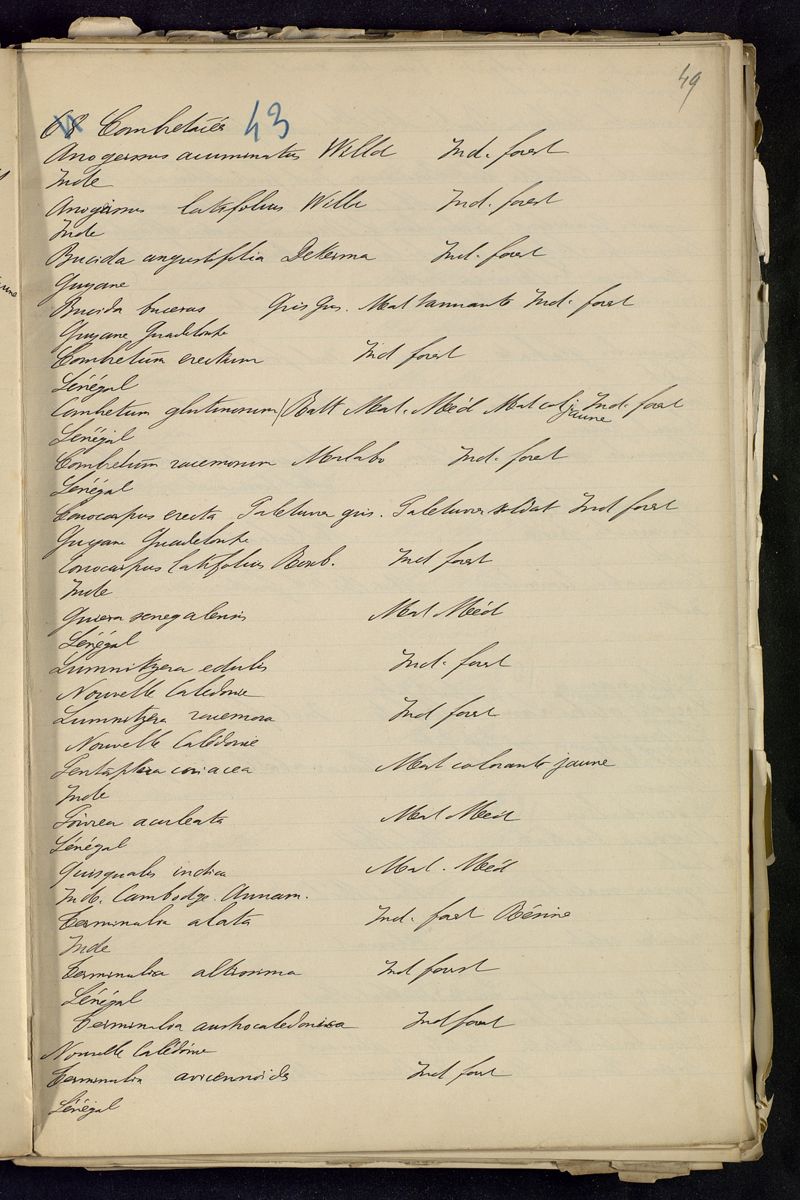 49
Combretacées 43
Anogeissus acuminatus Willd Ind. forest
Inde
Anogeissus latifolius Wille Ind. forest
Inde
Bucida angustifolia Dekerma Ind. forest
Guyane
Bucida buceras Gris Gris. Mat tannante Ind. forest
Guyane Guadeloupe
Combretum erectum Ind forest
Sénégal
Combretum glutinosum Ratt Mat. Méd Mat col. jaune Ind. forest
Sénégal
Combretum racemosum Ind. forest
Sénégal
Conocarpus erecta Paletuvier gris. Paletuvier soldat Ind forest
Guyane Guadeloupe
Conocarpus latifolius Roxb. Ind forest
Inde
Guiera senegalensis Mat Méd
Sénégal
Lumnitzera edulis Ind. forest
Nouvelle Calédonie
Lumnitzera racemosa Ind forest
Nouvelle Calédonie
Pentaptera coriacea Mat colorante jaune
Inde
aculeata Mat Méd
Sénégal
Quisqualis indica Mat. Méd
Inde. Cambodge. Annam.
Terminalia alata Ind. forest Résine
Inde
Terminalia altissima Ind forest
Sénégal
Terminalia austrocaledonica Ind forest
Nouvelle Calédonie
Terminalia avicennoides Ind forest
Sénégal